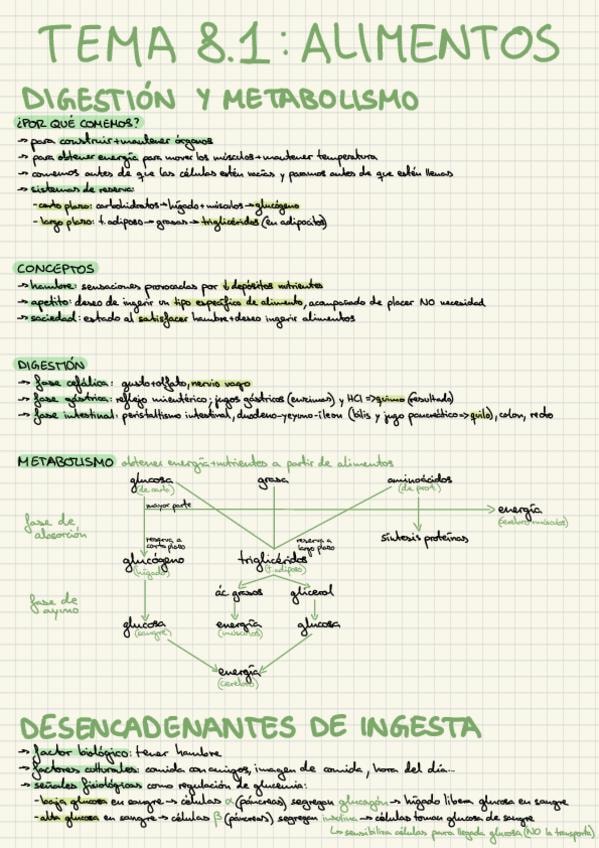 TEMA 8.1: ALIMENTOS
DIGESTIÓN Y METABOLISMO
¿POR QUÉ COMEMOS?
→ para construir+mantener órganos
→ para obtener energía para mover los músculos+mantener temperatura
→ comemos antes de que las células estén vacías y paramos antes de que estén llenas
→ sistemas de reserva:
- corto plazo: carbohidratos→hígado+músculos→glucógeno
- largo plazo: t. adiposo→grasas→triglicéridos (en adipocitos)
CONCEPTOS
→ hambre: sensaciones provocadas por ↓depósitos nutrientes
→ apetito: deseo de ingerir un tipo específico de alimento, acompañado de placer NO necesidad
→ saciedad: estado al satisfacer hambre+deseo ingerir alimentos
DIGESTIÓN
→ fase cefálica: gusto+olfato, nervio vago
→ fase gástrica: reflejo mientérico; jugos gástricos (enzimas) y HCl =>quimo (resultado)
→ fase intestinal: peristaltismo intestinal, duodeno-yeyuno-íleon (bilis y jugo pancreático=>quilo), colon, recto
METABOLISMO obtener energía+nutrientes a partir de alimentos
glucosa grasa aminoácidos
(de carb) (de prot.)
mayor parte energía
fase de absorción (cerebro músculos)
reserva a corto plazo reserva a largo plazo síntesis proteínas
glucógeno triglicéridos
(hígado) (t. adiposo)
fase de ayuno ác grasos glicerol
glucosa energía glucosa
(sangre) (músculos)
energía
(cerebro)
DESENCADENANTES DE INGESTA
→ factor biológico: tener hambre
→ factores culturales: comida con amigos, imagen de comida, hora del día...
→ señales fisiológicas como regulación de glucemia:
- baja glucosa en sangre→células α (páncreas) segregan glucagón→ hígado libera glucosa en sangre
- alta glucosa en sangre→células β (páncreas) segregan insulina →células toman glucosa de sangre
↳ sensibiliza células para llegada glucosa (NO la transporta)